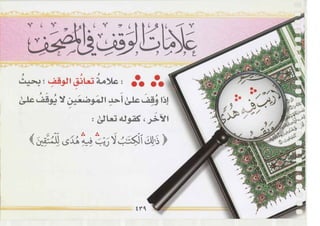 عَلَامَاتُ الوَقْفِ فِي المُصْحَفِ
: علامةُ تعانُقِ الوقفِ ؛ بحيثُ
إذا وُقِفَ علىٰ أحدِ المَوضعَينِ لا يُوقَفُ علىٰ
الآخَرِ ، كقوله تعالىٰ :
﴿ ذَٰلِكَ ٱلْكِتَٰبُ لَا رَيْبَ ۛ فِيهِ ۛ هُدًى لِّلْمُتَّقِينَ ﴾
لَا رَيْبَ ۛ فِيهِ ۛ هُدًى
٤٣٩